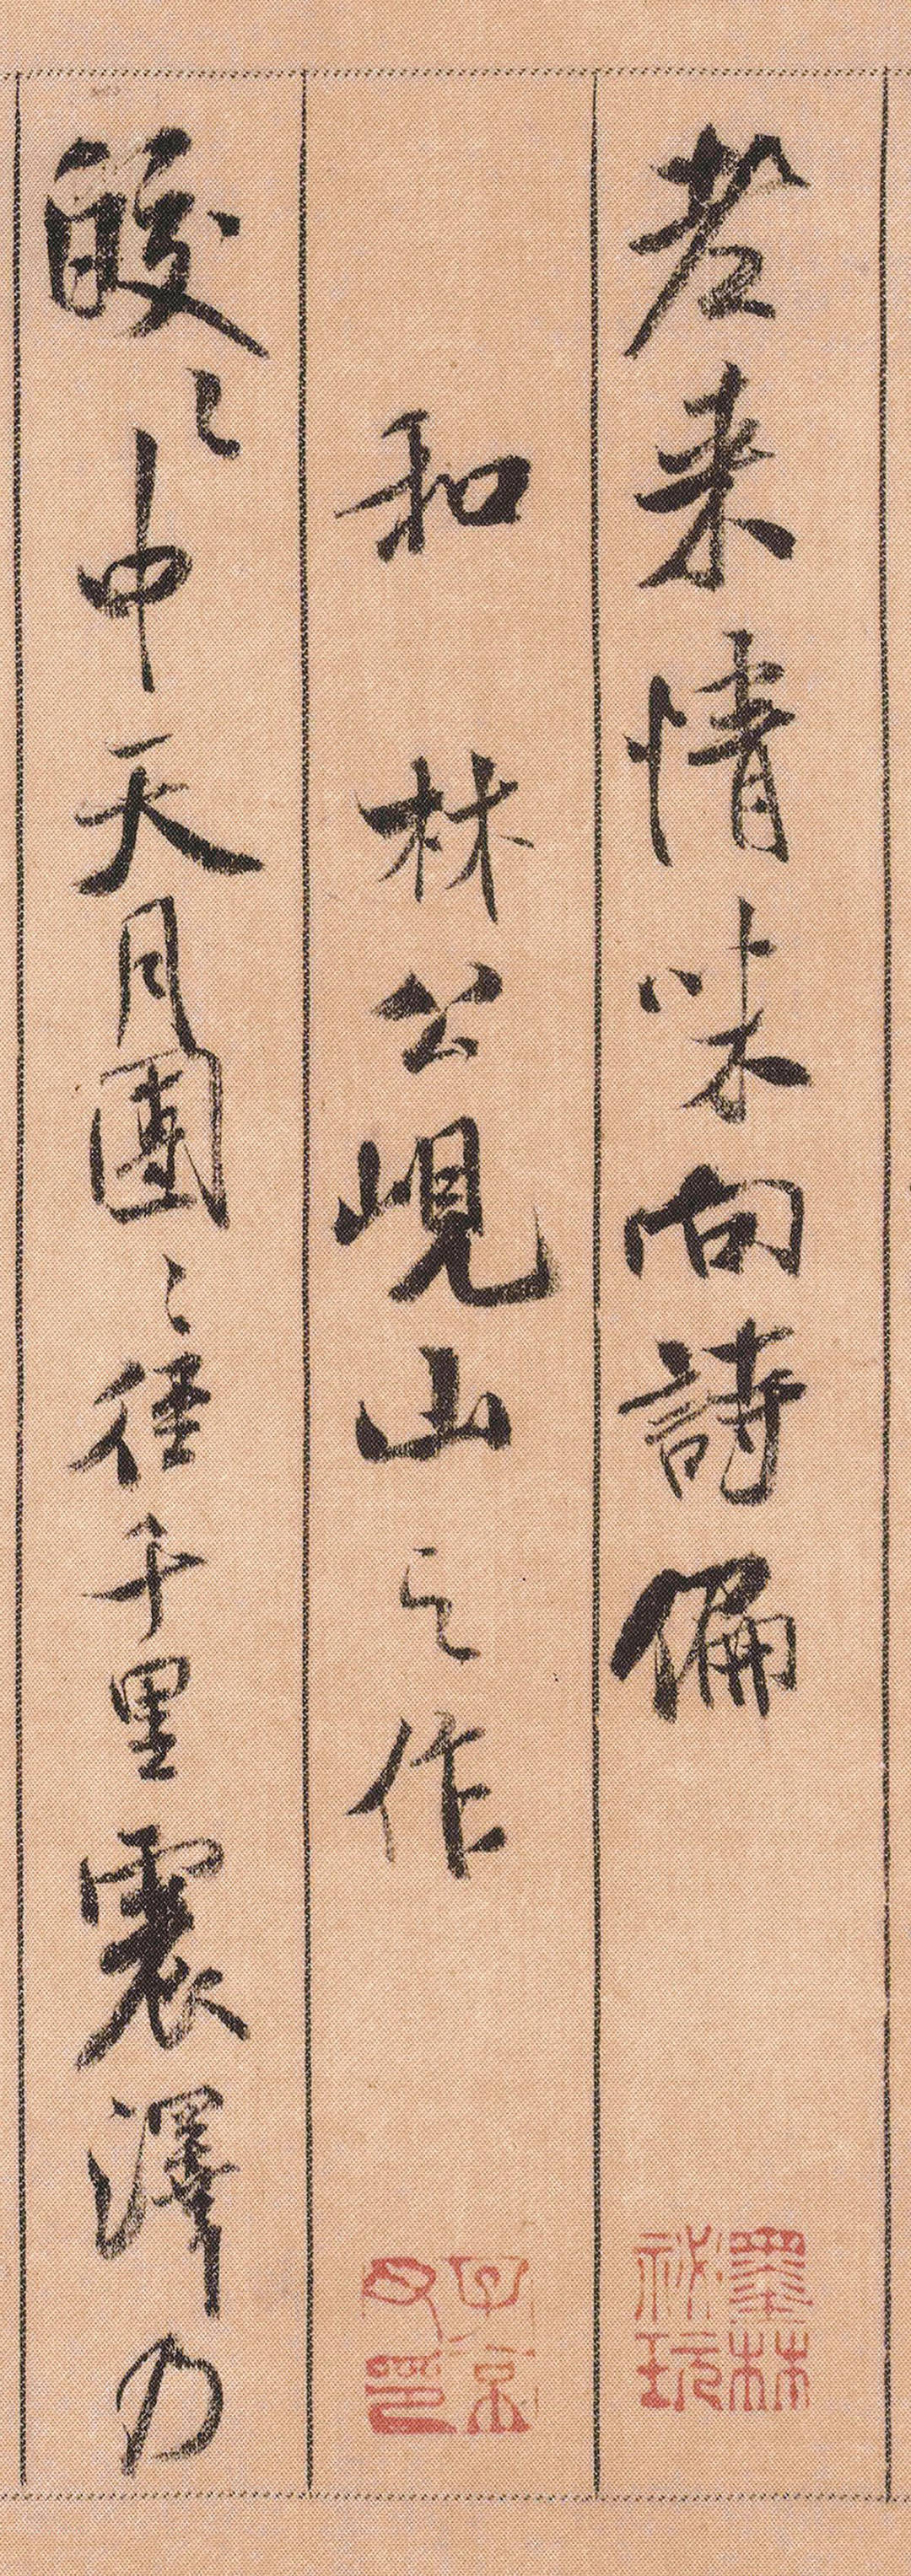 老来情味向詩偏
和林公峴山之作
皎〻中天月團〻徑千里震澤乃
墨林祕玩
子京父印